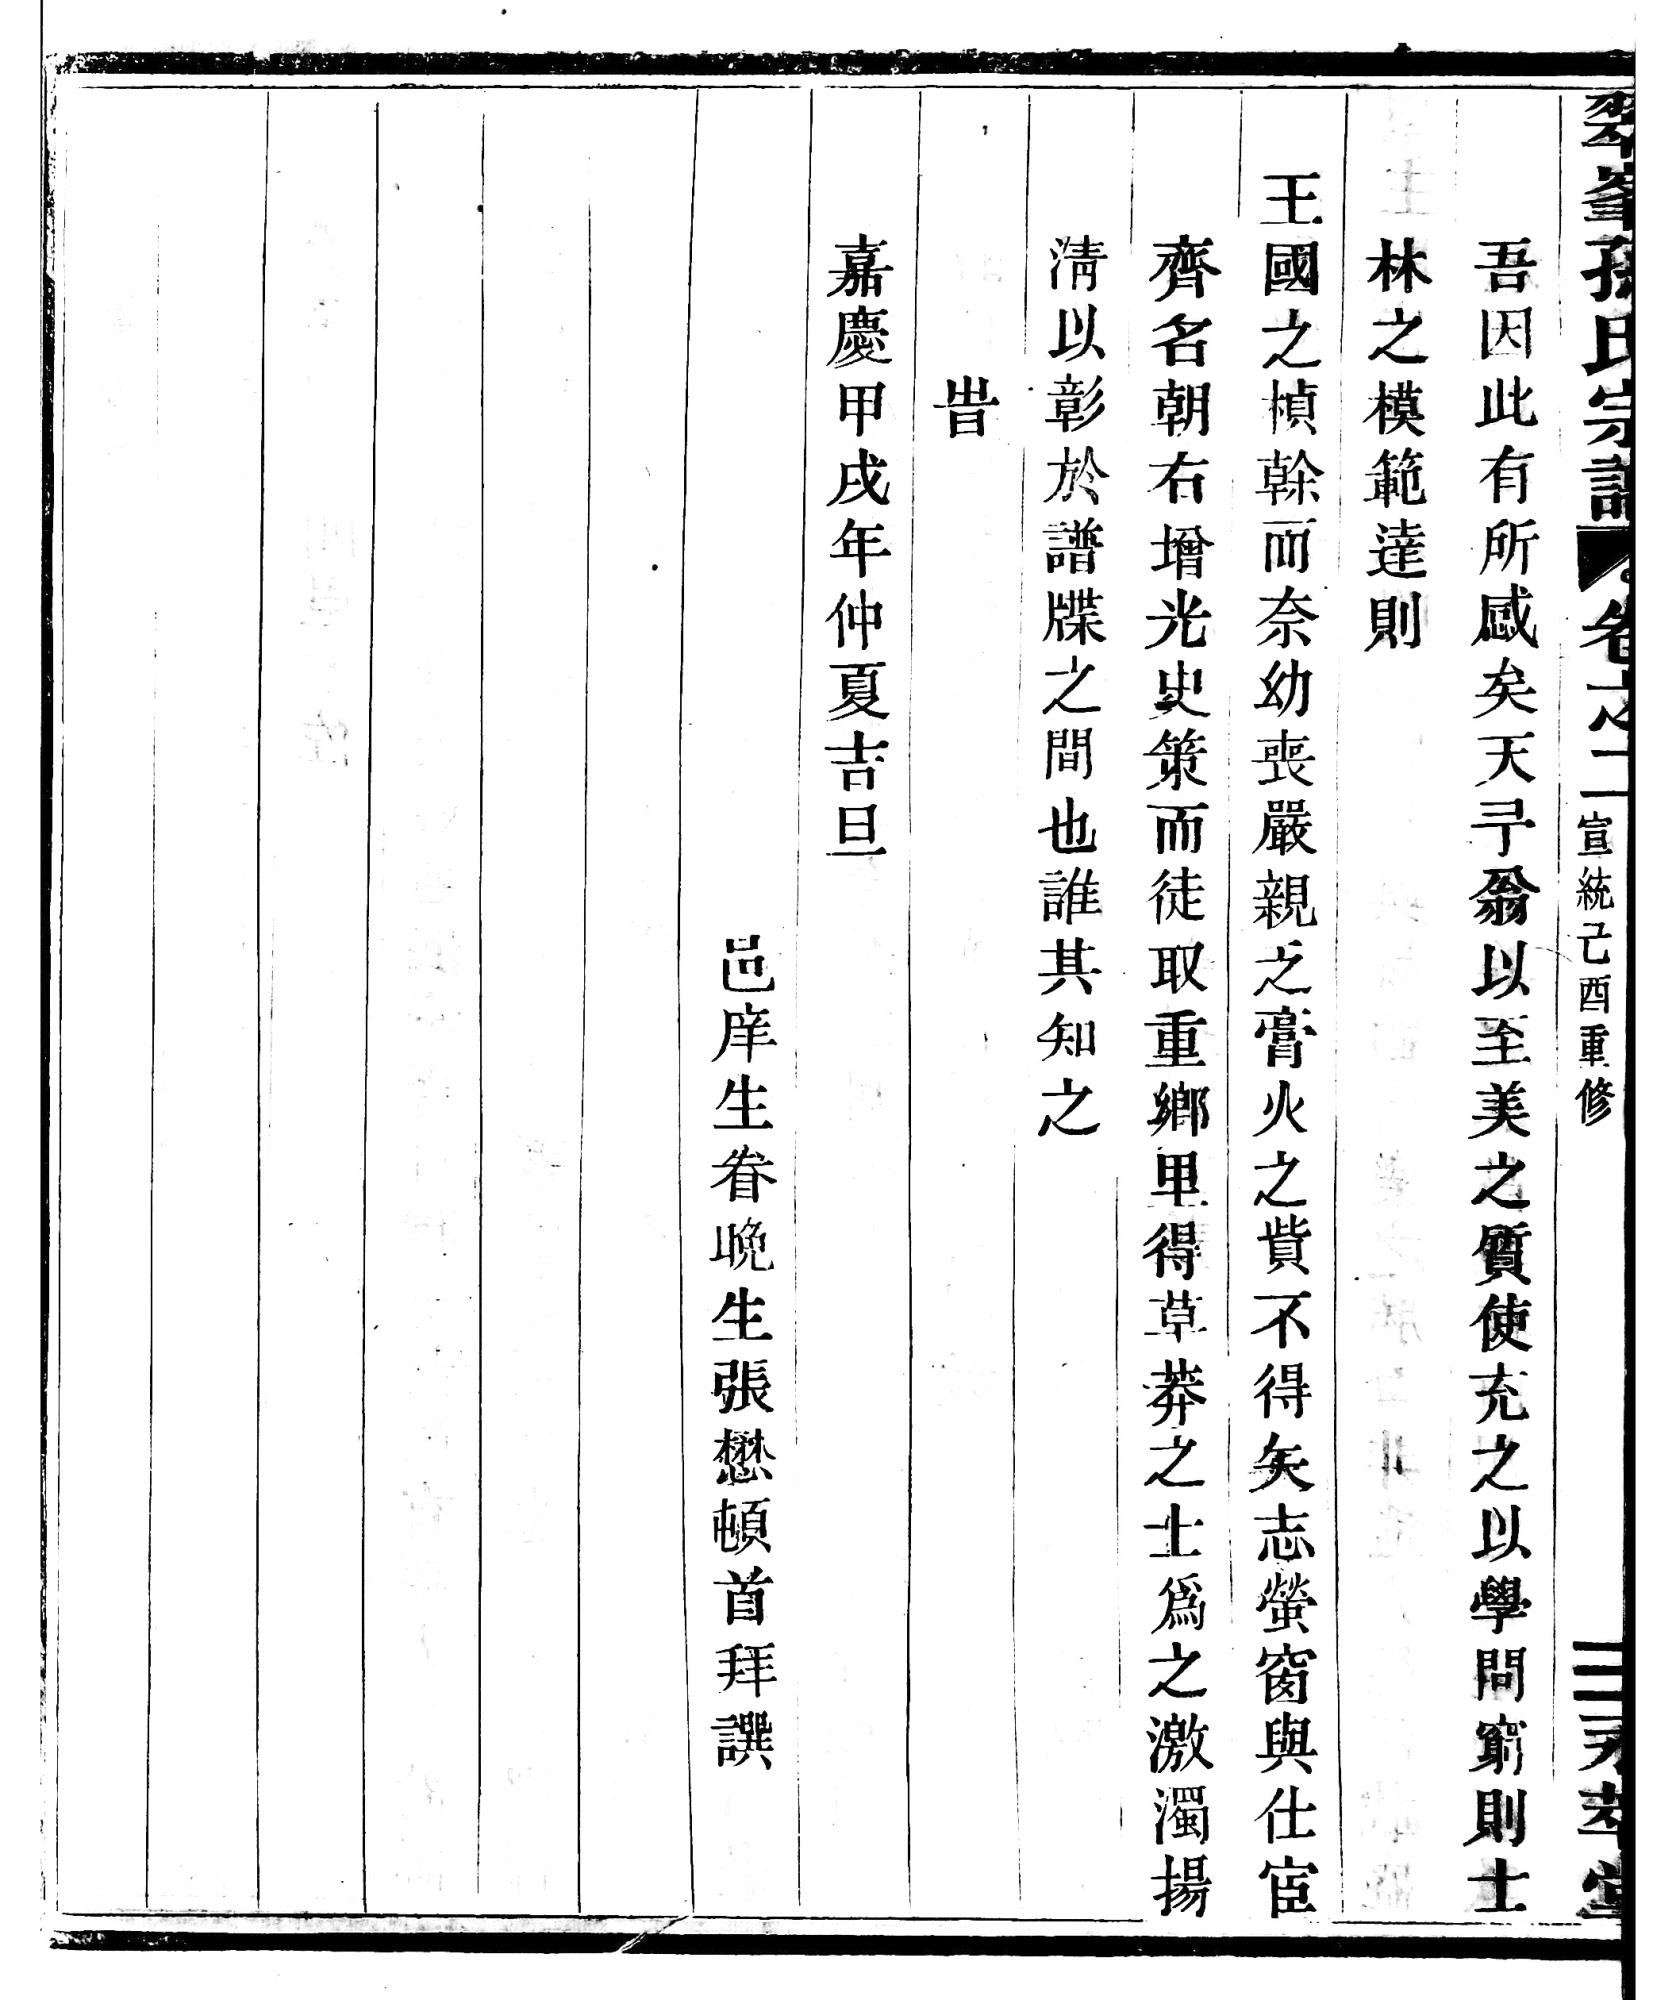 翠峯孫氏宗譜 卷之二 宣統己酉重修 二 永萃堂
吾因此有所感矣天予翁以至美之質使充之以學問窮則士
林之模範達則
王國之楨榦而奈幼喪嚴親之膏火之貲不得矢志螢窗與仕宦
齊名朝右增光史策而徒取重鄉里得草莽之士爲之激濁揚
清以彰於譜牒之間也誰其知之
旹
嘉慶甲戌年仲夏吉旦
邑庠生眷晚生張懋頓首拜譔